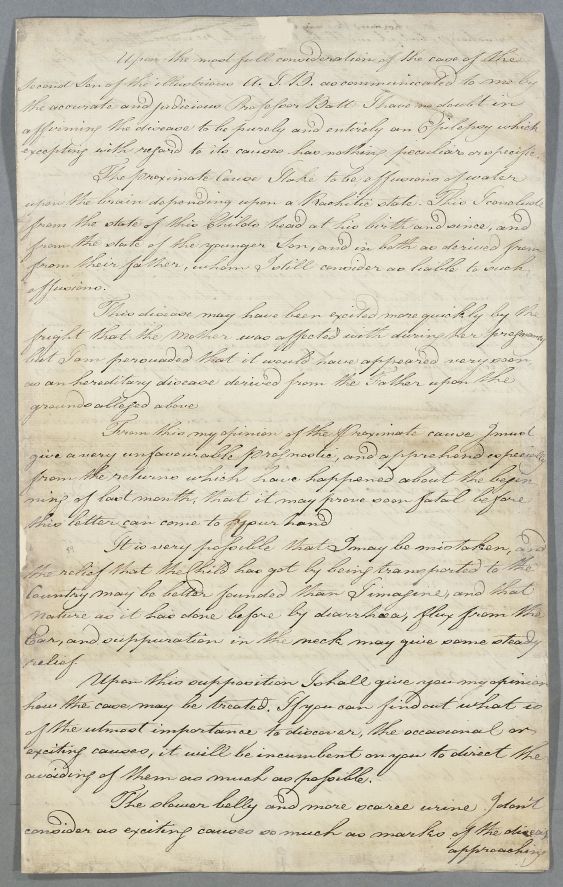 Upon the most full consideration of the case of the
second Son of the illustrious A. I. B. as communicated to me by
the accurate and judicious Professor Batt I have no doubt in
affirming the disease to be purely and entirely an Epilepsy which
excepting with regard to its causes has nothing peculiar or specific.
The proximate Cause I take to be effusions of water
upon the brain depending upon a Rachitic state. This I conclude
from the state of this Childs head at his birth and since, and
from the state of the younger Son, and in both as derived from
from their father, whom I still consider as liable to such
effusions.
This disease may have been excited more quickly by the
fright that the Mother was affected with during her pregnancy
but I am persuaded that it would have appeared very soon
as an hereditary disease derived from the Father upon the
grounds alleged above
From this my opinion of the Proximate cause I must
give a very unfavourable prognostic, and apprehend especially
from the returns which have happened about the begin
ning of last month, that it may prove soon fatal before
this letter can come to your hand
It is very possible that I may be mistaken, and
the relief that the Child has got by being transported to the
Country may be better founded than I imagine, and that
Nature as it has done before by diarrhœa, flux from the
Ear, and suppuration in the neck may give some steady
relief
Upon this supposition I shall give you my opinion
how the case may be treated. If you can find out what is
of the utmost importance to discover, the occasional or
exciting causes, it will be incumbent on you to direct the
avoiding of them as much as possible.
The slower belly and more scarce urine I don't
consider as exciting causes so much as marks of the disease
approaching